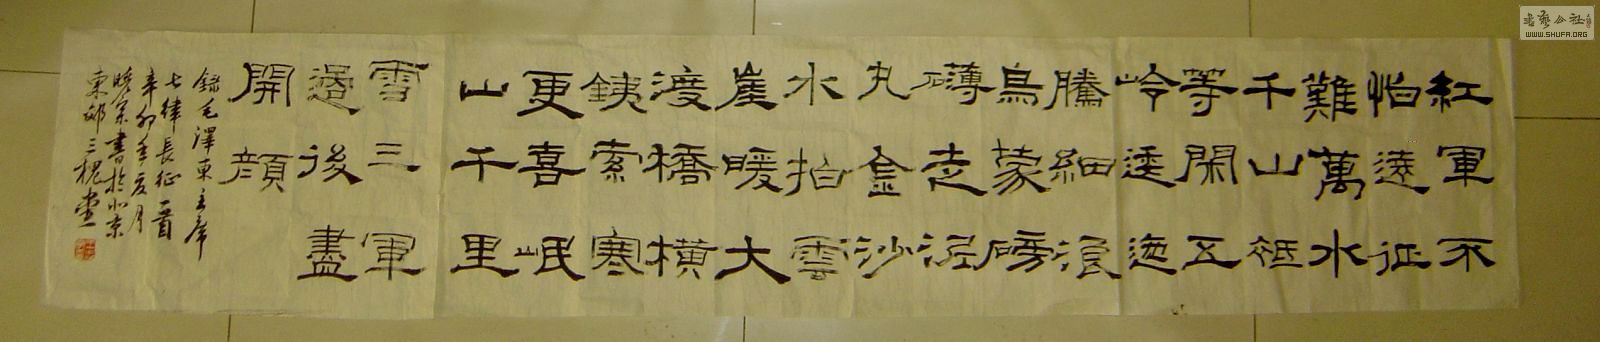 紅軍不
怕遠征
難萬水
千山祗
等閑五
岭逶迤
騰細浪
烏蒙磅
礴走泥
丸金沙
水拍雲
崖暖大
渡橋橫
銕索寒
更喜岷
山千里
雪三軍
過後盡
開顔
錄毛澤東主席
七律長征一首
辛卯年夏月
書於北京
東郊三槐堂
书艺公社
WWW.SHUFA.ORG